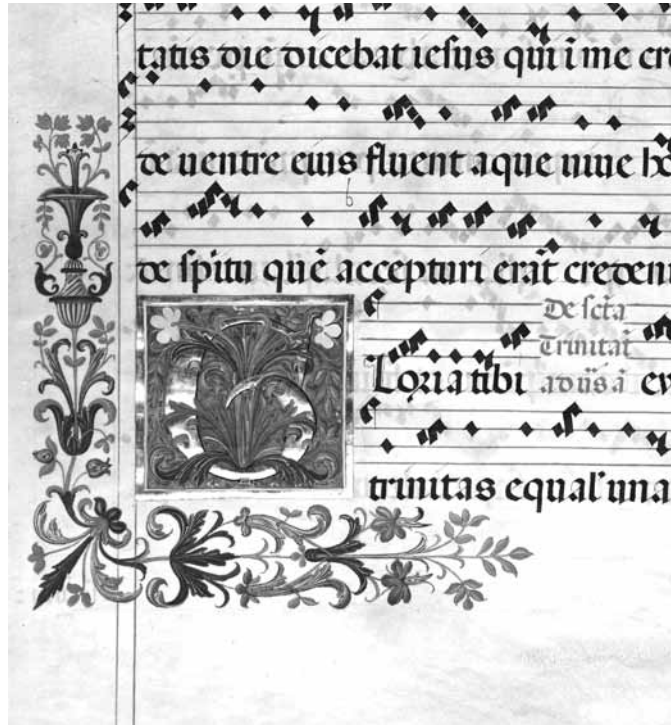 tatis die dicebat iesus qui ī me cre
de uentre eius fluent aque uiue
de spītu quē accepturi erāt creden
De scta
Trinitat̄
GLoria tibi
trinitas equal' una